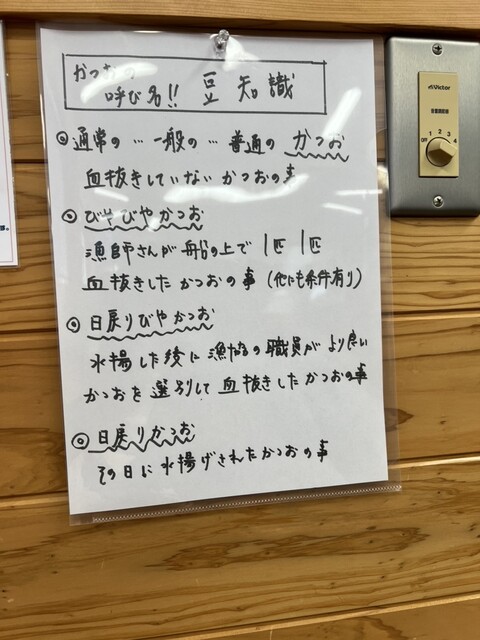 かつおの
呼び名!! 豆知識
◎通常の … 一般の … 普通の かつお
血抜きしていない かつおの事
◎びやびやかつお
漁師さんが船の上で 1匹 1匹
血抜きしたかつおの事 (他にも条件有り)
◎日戻りびやかつお
水揚した後に漁協の職員がより良い
かつおを選別して血抜きしたかつおの事
◎日戻りかつお
その日に水揚げされたかつおの事
Victor
音量調節器
OFF 1 2 3 4